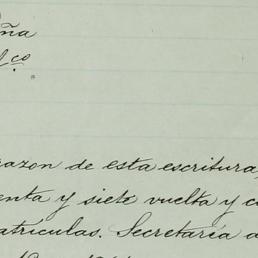 ña
razon de esta escritura,
enta y siete vuelta y c
atrículas. Secretaría d